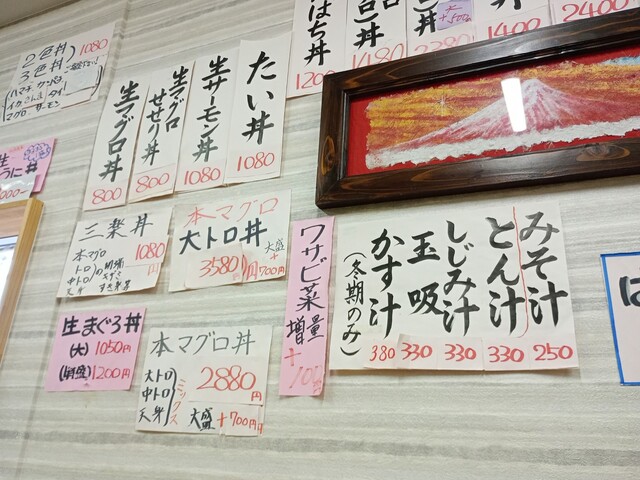 2色丼 1080
3色丼
ハマチ
イカ
タイ
マグロ サーモン
生マグロ丼 800
生マグロせせり丼 800
生サーモン丼 1080
たい丼 1080
はち丼 1200
丼 1480
丼 2380
+500
1400
2400
生うに丼
三楽丼 1080円
本マグロ
トロ
中トロ
天身
本マグロ
大トロ丼
3580円
大盛+700円
生まぐろ丼
(大) 1050円
1200円
本マグロ丼
2880円
大トロ
中トロ
天身
ミックス
大盛+700円
ワサビ菜増量
みそ汁 250
とん汁 330
しじみ汁 330
玉吸 330
かす汁(冬期のみ) 380
は